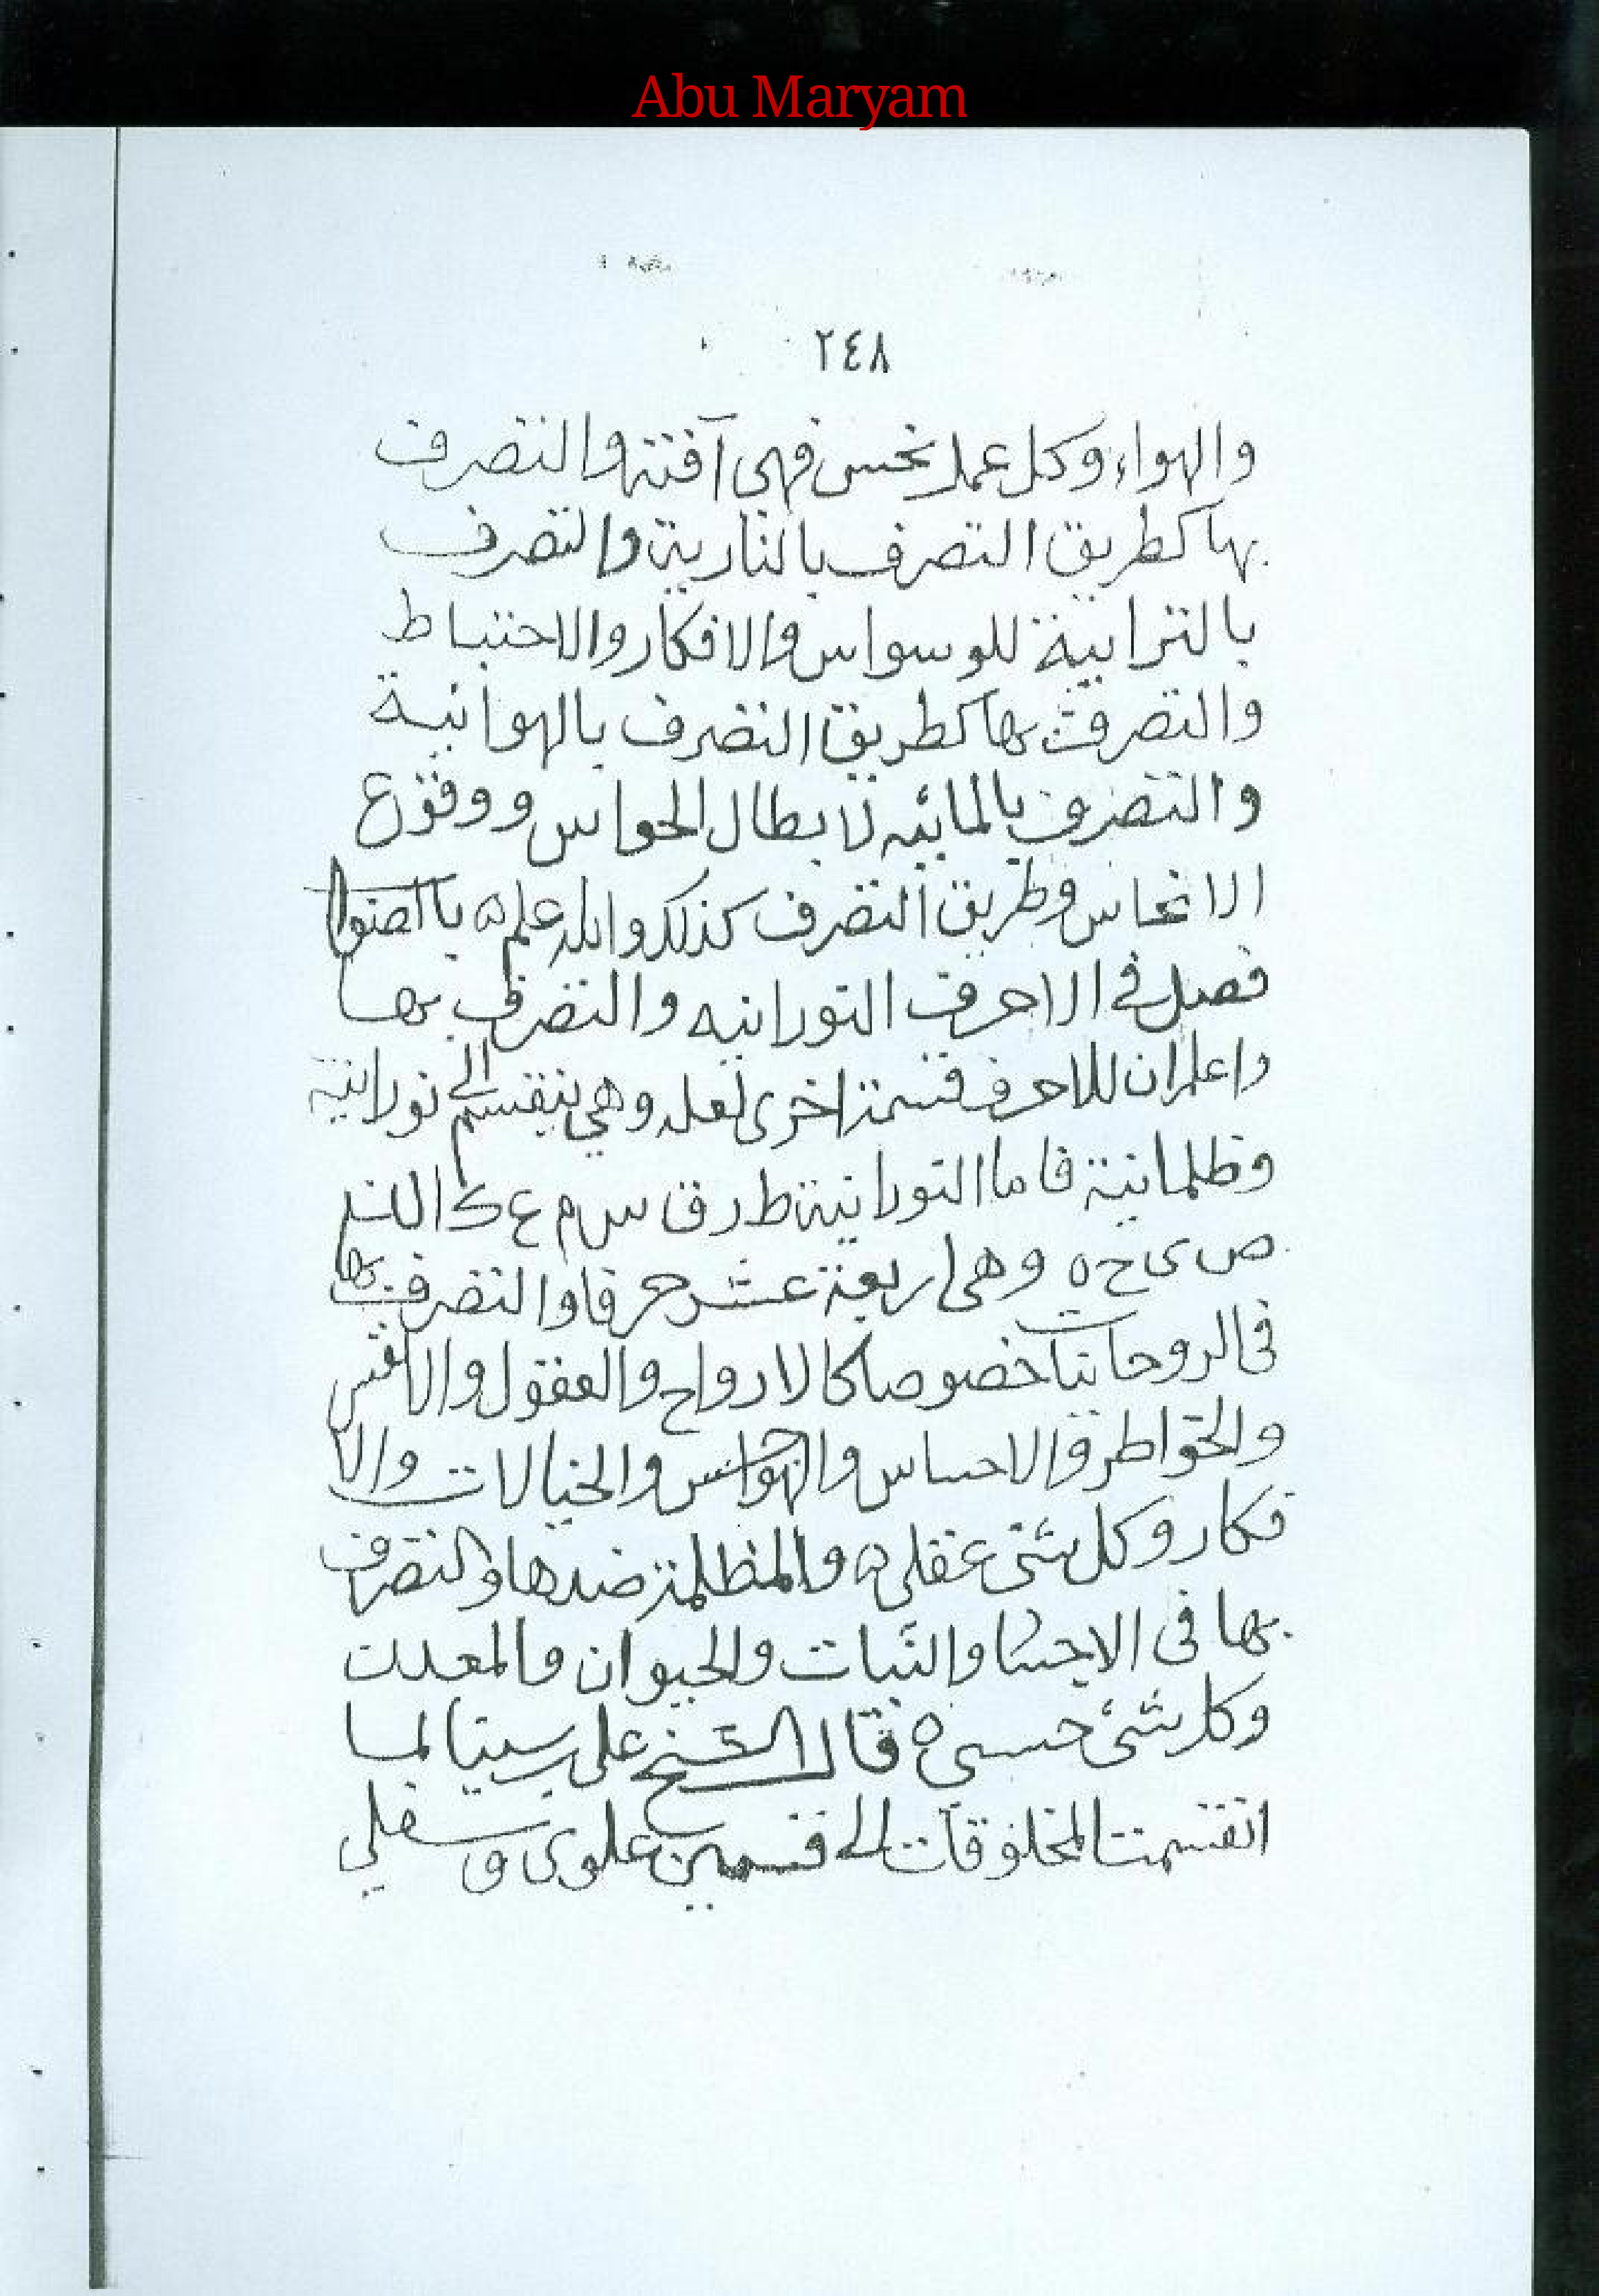 Abu Maryam
٢٤٨
والهواء وكل عمل نحس فهى آفته والتصرف
بها كطريق التصرف بالنارية والتصرف
بالترابية للوسواس والافكار والاحتباط
والتصرف بها كطريق التصرف بالهوائية
والتصرف بالمائيه لابطال الحواس ووقوع
الانحاس وطريق التصرف كذلك والله علم ه بالصواب
فصل فى الاحرف النورانيه والتصرف بها
واعلم ان للاحرف قسمة اخرى وهي ينقسم الى نورانية
وظلمانية فاما النورانية ط ر ق س م ع ك ا ل ن
ص ى ح ه وهى اربعة عشر حرفا والتصرف بها
فى الروحانيات خصوصا كالارواح والعقول والانفس
والخواطر والاحساس والهواجس والخيالات والا
فكار وكل شئ عقلى ه والمظلمة ضدها والتصرف
بها فى الاجسا والنبات والحيوان والمعدن
وكل شئ حسى ه قال الشيخ على بن سينا لما
انقسمت المخلوقات الى قسمين علوى وسفلي